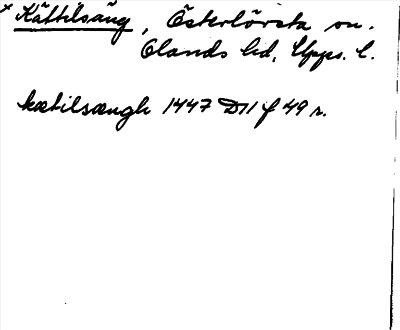 * Kättilsäng, Österlövsta sn.
Olands hd, Upps. l.
kætilsængh 1447 D11 f 49 r.